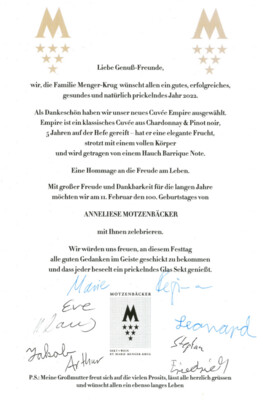 M
M
Liebe Genuß-Freunde,
wir, die Familie Menger-Krug, wünscht allen ein gutes, erfolgreiches,
gesundes und natürlich prickelndes Jahr 2022.
Als Dankeschön haben wir unser neues Cuvée Empire ausgewählt.
Empire ist ein klassisches Cuvée aus Chardonnay & Pinot noir,
5 Jahren auf der Hefe gereift – hat er eine elegante Frucht,
strotzt mit einem vollen Körper
und wird getragen von einem Hauch Barrique Note.
Eine Hommage an die Freude am Leben.
Mit großer Freude und Dankbarkeit für die langen Jahre
möchten wir am 11. Februar den 100. Geburtstags von
ANNELIESE MOTZENBÄCKER
mit Ihnen zelebrieren.
Wir würden uns freuen, an diesem Festtag
alle guten Gedanken im Geiste geschickt zu bekommen
und dass jeder beseelt ein prickelndes Glas Sekt genießt.
Marie Regina
MOTZENBÄCKER
Eve
Klaus
M
Leonard
Stephan
Jakob
Arthur
Friedrich
P.S.: Meine Großmutter freut sich auf die vielen Prosits, lässt alle herzlich grüssen
und wünscht allen ein ebenso langes Leben